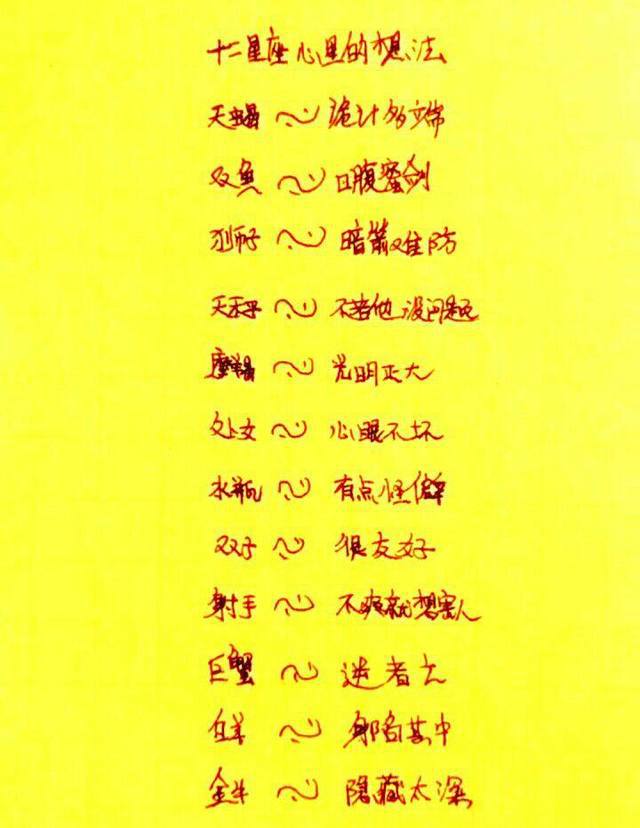 十二星座心里的想法
天蝎~诡计多端
双鱼~口腹蜜剑
狮子~暗箭难防
天秤~不者他没问题
摩羯~光明正大
处女~心眼不坏
水瓶~有点怪僻
双子~很友好
射手~不爽就想害人
巨蟹~逆者亡
白羊~身陷其中
金牛~隐藏太深